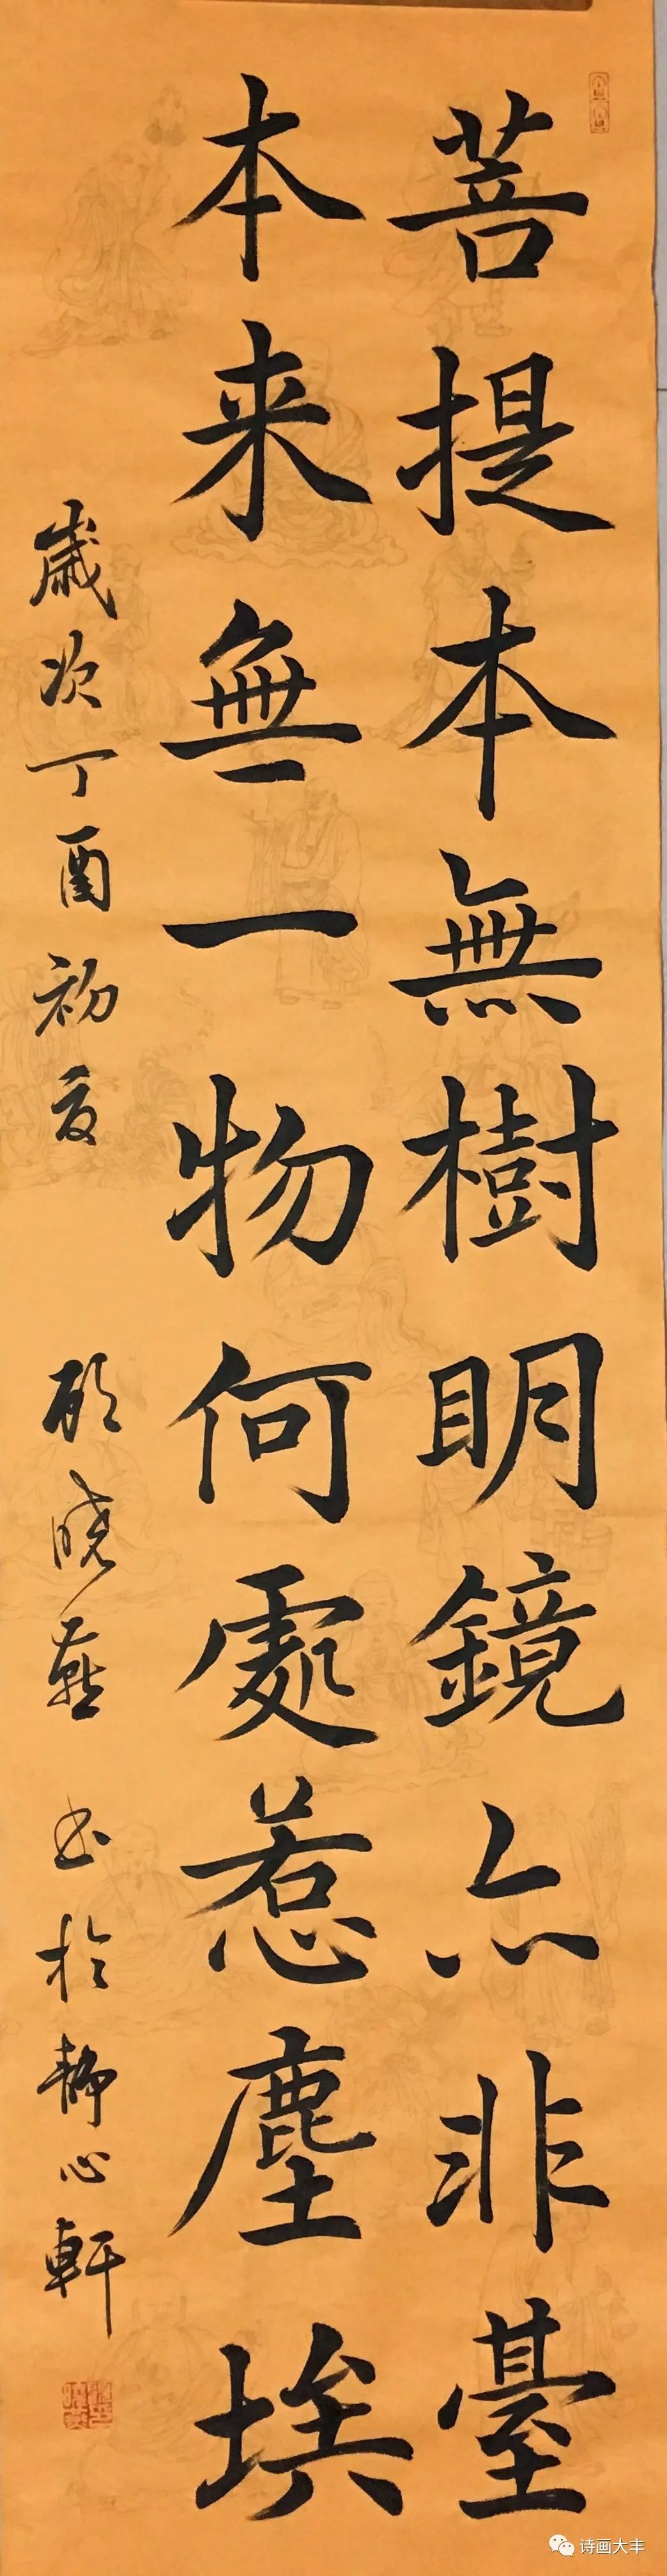 菩提本無樹明鏡亦非臺
本来無一物何處惹塵埃
歲次丁酉初夏 顧晓燕 书於靜心軒
诗画大丰